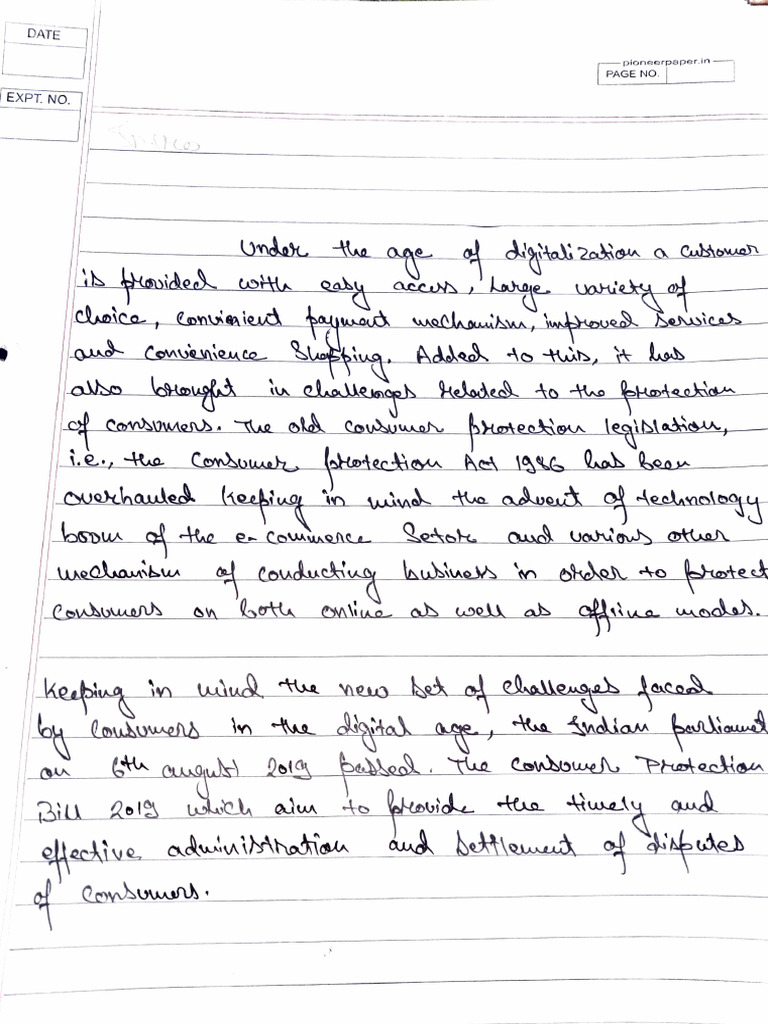 DATE
pioneerpaper.in
PAGE NO.
EXPT. NO.
Under the age of digitalization a customer
is provided with easy access, large variety of
choice, convinient payment mechanism, improved services
and convenience Shopping. Added to this, it has
also brought in challenges related to the protection
of consumers. The old consumer protection legislation,
i.e., the Consumer protection Act 1986 has been
overhauled keeping in mind the advent of technology
boom of the e-commerce Setor and various other
mechanism of conducting business in order to protect
consumers on both online as well as offline modes.
Keeping in mind the new set of challenges faced
by consumers in the digital age, the Indian parliament
on 6th august 2019 passed. The Consumer Protection
Bill 2019 which aim to provide the timely and
effective administration and settlement of disputes
of consumers.